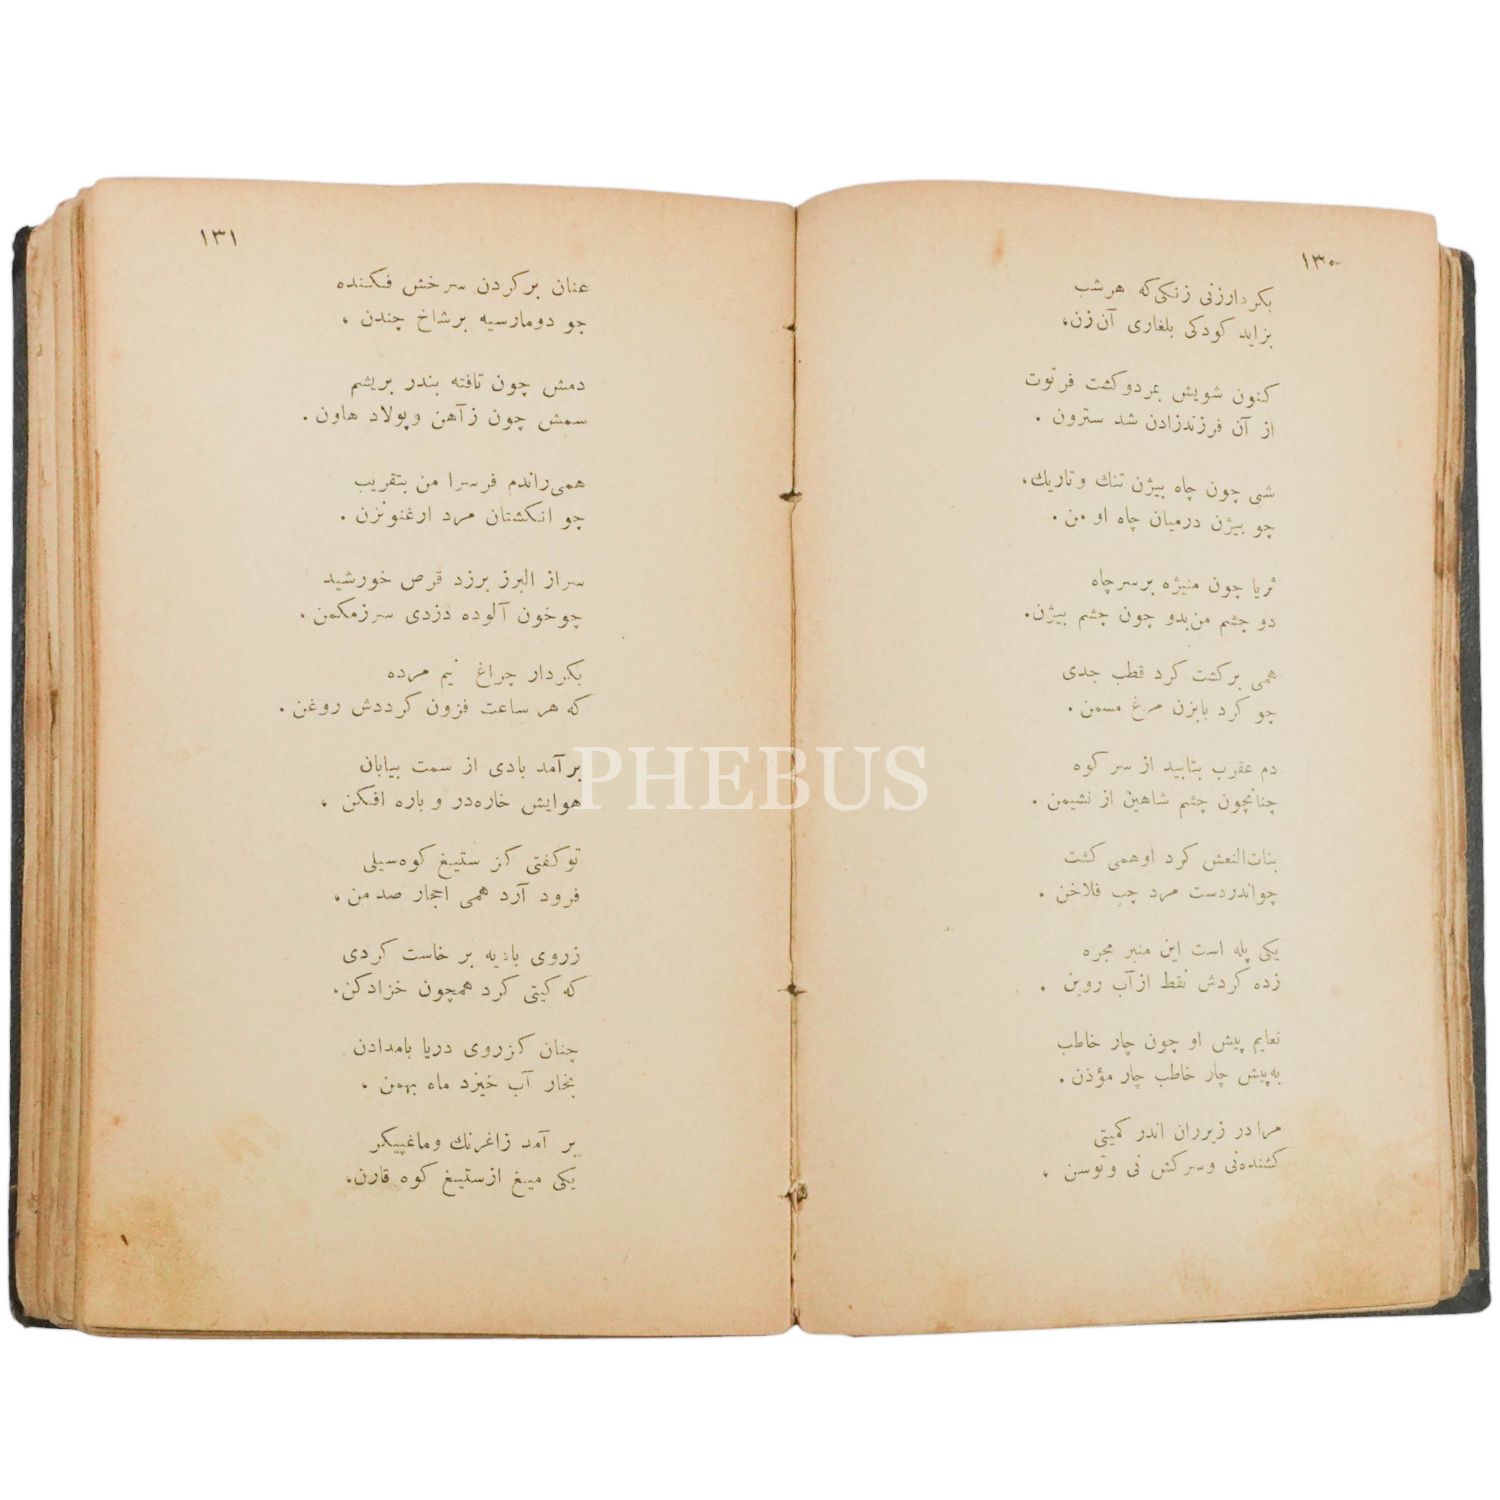 ١٣٠
بكردارزنی زنكی‌كه هرشب
بزاید كودكی بلغاری آن‌زن،
كنون شویش بمردوكشت فرتوت
از آن فرزندزادن شد سترون .
شبی چون چاه بیژن تنك وتاریك،
چو بیژن درمیان چاه او من .
ثریا چون منیژه برسرچاه
دو چشم من‌بدو چون چشم بیژن.
همی بركشت كرد قطب جدی
چو كرد بابزن مرغ مسمن .
دم عقرب بتابید از سر كوه
چنانچون چشم شاهین از نشیمن .
بنات‌النعش كرد اوهمی كشت
چواندردست مرد چپ فلاخن .
یكی پله است این منبر مجره
زده كردش نقط ازآب روین .
نعایم پیش او چون چار خاطب
به‌پیش چار خاطب چار مؤذن .
مرادر زیرران اندر كمیتی
كشنده‌نی وسركش نی وتوسن ،
١٣١
عنان بركردن سرخش فكنده
جو دومارسیه برشاخ چندن ،
دمش چون تافته بندر بریشم
سمش چون زآهن وپولاد هاون .
همی‌راندم فرسرا من بتقریب
چو انكشتان مرد ارغنونزن .
سراز البرز برزد قرص خورشید
چوخون آلوده دزدی سرزمكمن .
بكردار چراغ نیم مرده
كه هر ساعت فزون كرددش روغن .
برآمد بادی از سمت بیابان
هوایش خاره‌در و باره افكن ،
توكفتی كز ستیغ كوه‌سیلی
فرود آرد همی احجار صد من ،
زروی بادیه بر خاست كردی
كه كیتی كرد همچون خزادكن.
چنان كزروی دریا بامدادن
بخار آب خیزد ماه بهمن ،
بر آمد زاغرنك وماغپیكر
یكی میغ ازستیغ كوه قارن،
PHEBUS